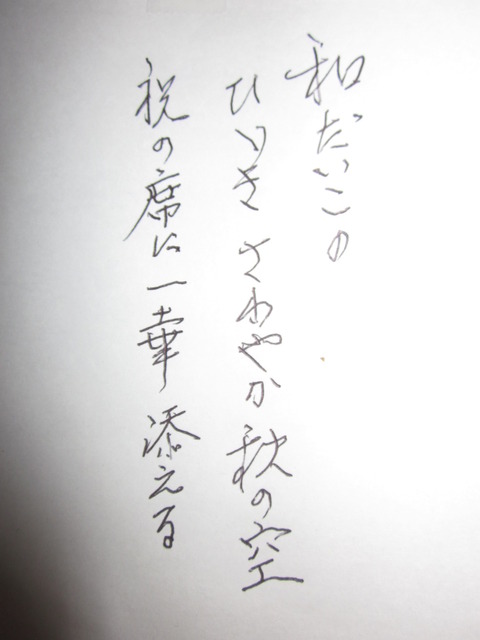 和だいこの
ひゞき さわやか 秋の空
祝の席に一華添える